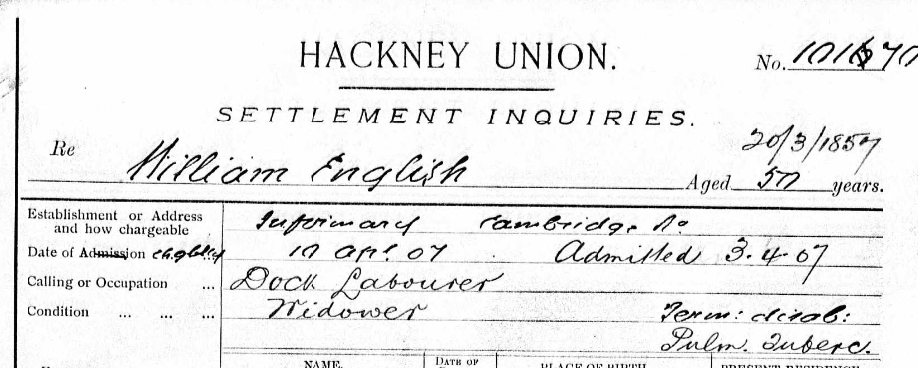 HACKNEY UNION.
No. 101670
SETTLEMENT INQUIRIES.
20/3/1857
Re William English Aged 50 years.
Establishment or Address
and how chargeable Cambridge
Date of Admission chgblty 17 Apl. 07 Admitted 3.4.07
Calling or Occupation ... Dock Labourer
Condition ... ... ... Widower Term: disab:
Pulm. Tuberc.
NAME. DATE OF PLACE OF BIRTH. PRESENT RESIDENCE